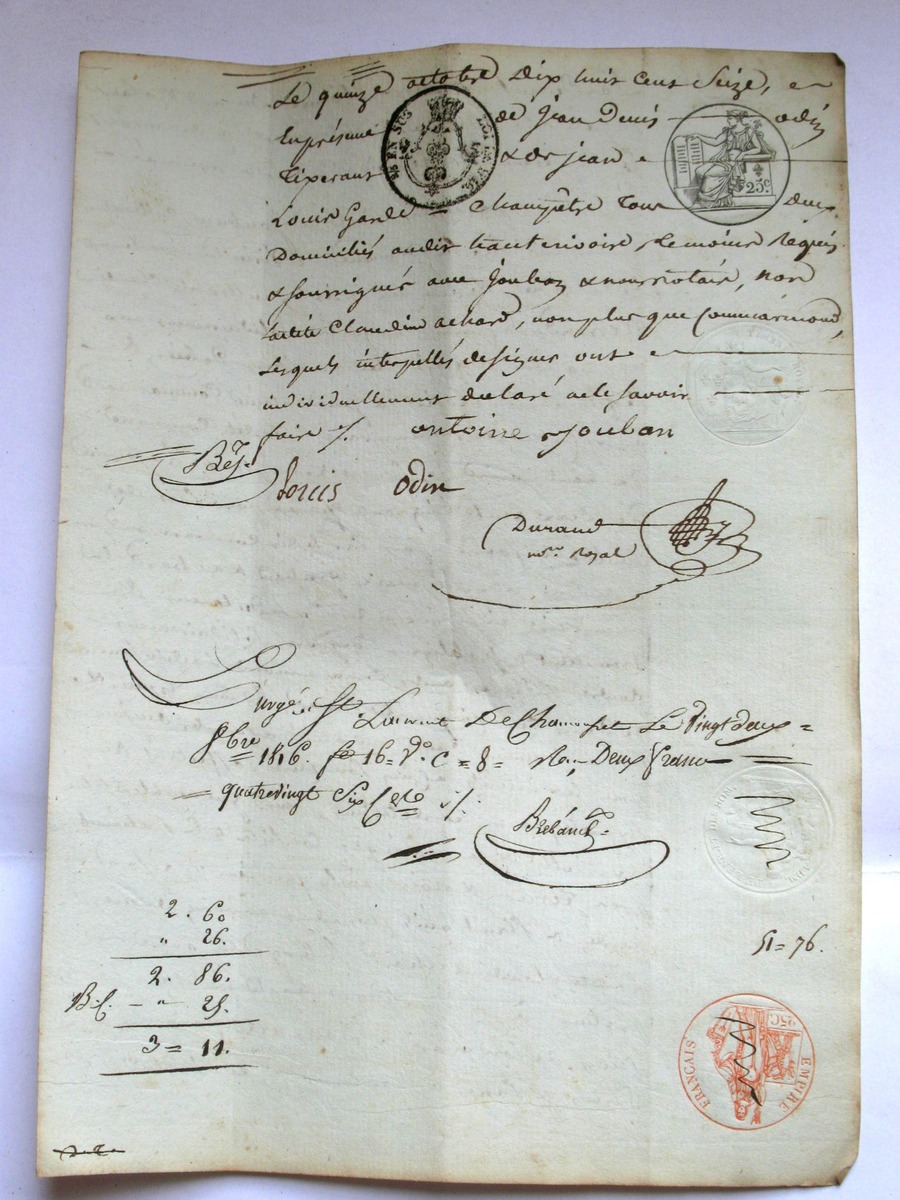 Le quinze octobre Dix huit cent Seize, en
En présence de Jean Denis odin
Tixerant & de jean
Louis Garde = Champêtre Tous deux
Domiciliés audit hauterivoire, Temoins Requis
& soussignés avec Jouban & nous notaire, non
ladite Claudine achard, non plus que Commarmond,
Lesquels interpellés de signer ont
individuellement declaré ne le savoir
faire ·/. antoine Jouban
Louis Odin
Durand
no.re Royal
St Laurent De Chamousset Le Vingt deux
8bre 1816. fo 16 = Vo. C = 8 = Deux francs
quatrevingt Six
2. 60
" 26.
51 = 76.
2. 86.
- " 25.
3 = 11.
25 EN SUS
25c.
25C
EMPIRE
FRANÇAIS